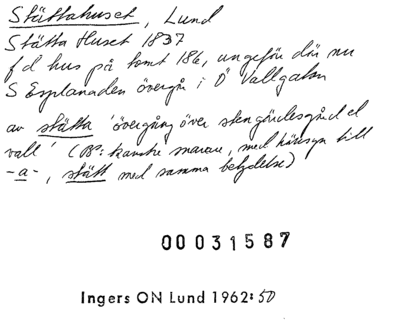 Stättahuset, Lund
Stätta Huset 1837
f d hus på tomt 186, ungefär där nu
S Esplanaden övergår i Ö Vallgatan
av stätta 'övergång över stengärdesgård el
vall' (OBS: kanske snarare, med hänsyn till
-a-, stätt med samma betydelse)
00031587
Ingers ON Lund 1962: 50